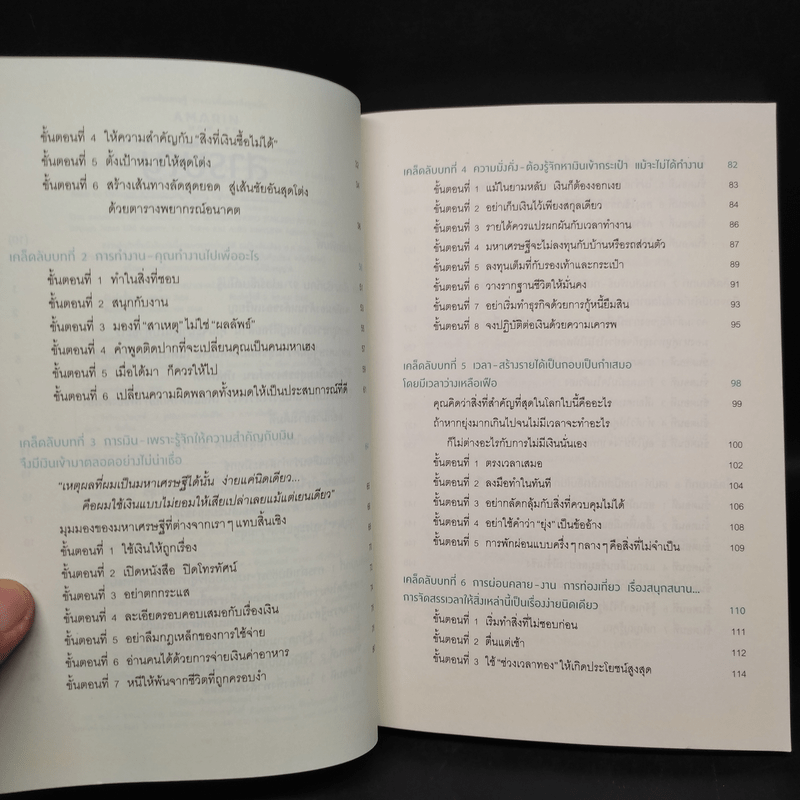 ขั้นตอนที่ 4 ให้ความสำคัญกับ "สิ่งที่เงินซื้อไม่ได้"
ขั้นตอนที่ 5 ตั้งเป้าหมายให้สุดโต่ง
ขั้นตอนที่ 6 สร้างเส้นทางลัดสุดยอด สู่เส้นชัยอันสุดโต่ง
ด้วยตารางพยากรณ์อนาคต
เคล็ดลับบทที่ 2 การทำงาน-คุณทำงานไปเพื่ออะไร
ขั้นตอนที่ 1 ทำในสิ่งที่ชอบ
ขั้นตอนที่ 2 สนุกกับงาน
ขั้นตอนที่ 3 มองที่ "สาเหตุ" ไม่ใช่ "ผลลัพธ์"
ขั้นตอนที่ 4 คำพูดติดปากที่จะเปลี่ยนคุณเป็นคนมหาเฮง
ขั้นตอนที่ 5 เมื่อได้มา ก็ควรให้ไป
ขั้นตอนที่ 6 เปลี่ยนความผิดพลาดทั้งหมดให้เป็นประสบการณ์ที่ดี
เคล็ดลับบทที่ 3 การเงิน-เพราะรู้จักให้ความสำคัญกับเงิน
จึงมีเงินเข้ามาตลอดอย่างไม่น่าเชื่อ
"เหตุผลที่ผมเป็นมหาเศรษฐีได้นั้น ง่ายแค่นิดเดียว...
คือผมใช้เงินแบบไม่ยอมให้เสียเปล่าเลยแม้แต่เยนเดียว"
มุมมองของมหาเศรษฐีที่ต่างจากเราๆ แทบสิ้นเชิง
ขั้นตอนที่ 1 ใช้เงินให้ถูกเรื่อง
ขั้นตอนที่ 2 เปิดหนังสือ ปิดโทรทัศน์
ขั้นตอนที่ 3 อย่าตกกระแส
ขั้นตอนที่ 4 ละเอียดรอบคอบเสมอกับเรื่องเงิน
ขั้นตอนที่ 5 อย่าลืมกฎเหล็กของการใช้จ่าย
ขั้นตอนที่ 6 อ่านคนได้ด้วยการจ่ายเงินค่าอาหาร
ขั้นตอนที่ 7 หนีให้พ้นจากชีวิตที่ถูกครอบงำ
เคล็ดลับบทที่ 4 ความมั่งคั่ง-ต้องรู้จักหาเงินเข้ากระเป๋า แม้จะไม่ได้ทำงาน 82
ขั้นตอนที่ 1 แม้ในยามหลับ เงินก็ต้องงอกเงย 83
ขั้นตอนที่ 2 อย่าเก็บเงินไว้เพียงสกุลเดียว 84
ขั้นตอนที่ 3 รายได้ควรแปรผกผันกับเวลาทำงาน 86
ขั้นตอนที่ 4 มหาเศรษฐีจะไม่ลงทุนกับบ้านหรือรถส่วนตัว 87
ขั้นตอนที่ 5 ลงทุนเต็มที่กับรองเท้าและกระเป๋า 89
ขั้นตอนที่ 6 วางรากฐานชีวิตให้มั่นคง 91
ขั้นตอนที่ 7 อย่าเริ่มทำธุรกิจด้วยการกู้หนี้ยืมสิน 93
ขั้นตอนที่ 8 จงปฏิบัติต่อเงินด้วยความเคารพ 95
เคล็ดลับบทที่ 5 เวลา-สร้างรายได้เป็นกอบเป็นกำเสมอ
โดยมีเวลาว่างเหลือเฟือ 98
คุณคิดว่าสิ่งที่สำคัญที่สุดในโลกใบนี้คืออะไร 99
ถ้าหากยุ่งมากเกินไปจนไม่มีเวลาจะทำอะไร
ก็ไม่ต่างอะไรกับการไม่มีเงินนั่นเอง 100
ขั้นตอนที่ 1 ตรงเวลาเสมอ 102
ขั้นตอนที่ 2 ลงมือทำในทันที 104
ขั้นตอนที่ 3 อย่ากลัดกลุ้มกับสิ่งที่ควบคุมไม่ได้ 106
ขั้นตอนที่ 4 อย่าใช้คำว่า "ยุ่ง" เป็นข้ออ้าง 108
ขั้นตอนที่ 5 การพักผ่อนแบบครึ่งๆ กลางๆ คือสิ่งที่ไม่จำเป็น 109
เคล็ดลับบทที่ 6 การผ่อนคลาย-งาน การท่องเที่ยว เรื่องสนุกสนาน...
การจัดสรรเวลาให้สิ่งเหล่านี้เป็นเรื่องง่ายนิดเดียว 110
ขั้นตอนที่ 1 เริ่มทำสิ่งที่ไม่ชอบก่อน 111
ขั้นตอนที่ 2 ตื่นแต่เช้า 112
ขั้นตอนที่ 3 ใช้ "ช่วงเวลาทอง" ให้เกิดประโยชน์สูงสุด 114